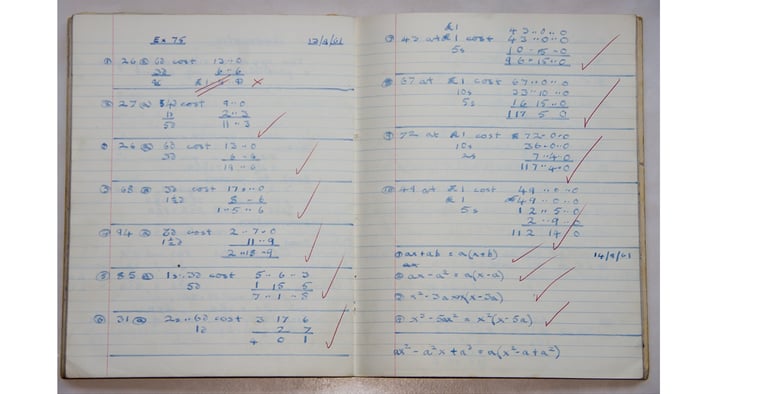 Ex 75 12/9/61
① 26 @ 6d cost 13 .. 0
3d 6 .. 6
27 @ 4d cost 9 .. 0
1d 2 .. 3
5d 11 .. 3
26 @ 6d cost 13 .. 0
3d 6 .. 6
19 .. 6
③ 68 @ 3d cost 17 .. 0
1½d 8 .. 6
1 .. 5 .. 6
④ 94 @ 6d cost 2 .. 7 .. 0
1½d 11 .. 9
2 .. 18 .. 9
⑤ 85 @ 1s .. 3d cost 5 .. 6 .. 3
5d 1 15 5
7 .. 1 .. 8
⑥ 31 @ 2s .. 6d cost 3 17 6
1d 2 7
4 0 1
⑦ 43 at £1 cost 43 .. 0 .. 0
£1 43 .. 0 .. 0
5s 10 .. 15 .. 0
96 .. 15 .. 0
⑧ 67 at £1 cost 67 .. 0 .. 0
10s 33 .. 10 .. 0
5s 16 15 .. 0
117 5 0
⑨ 72 at £1 cost £ 72 .. 0 .. 0
10s 36 .. 0 .. 0
2s 7 .. 4 .. 0
117 .. 4 .. 0
⑩ 49 at £1 cost 49 .. 0 .. 0
£1 49 .. 0 .. 0
5s 12 .. 5 .. 0
2 .. 9 .. 0
112 14 0
① ax + ab = a(x+b) 14/9/61
② ax - a² = a(x-a)
③ x² - 3ax = x(x-3a)
④ x³ - 5ax² = x²(x-5a)
ax² - a²x + a³ = a(x²-a+a²)